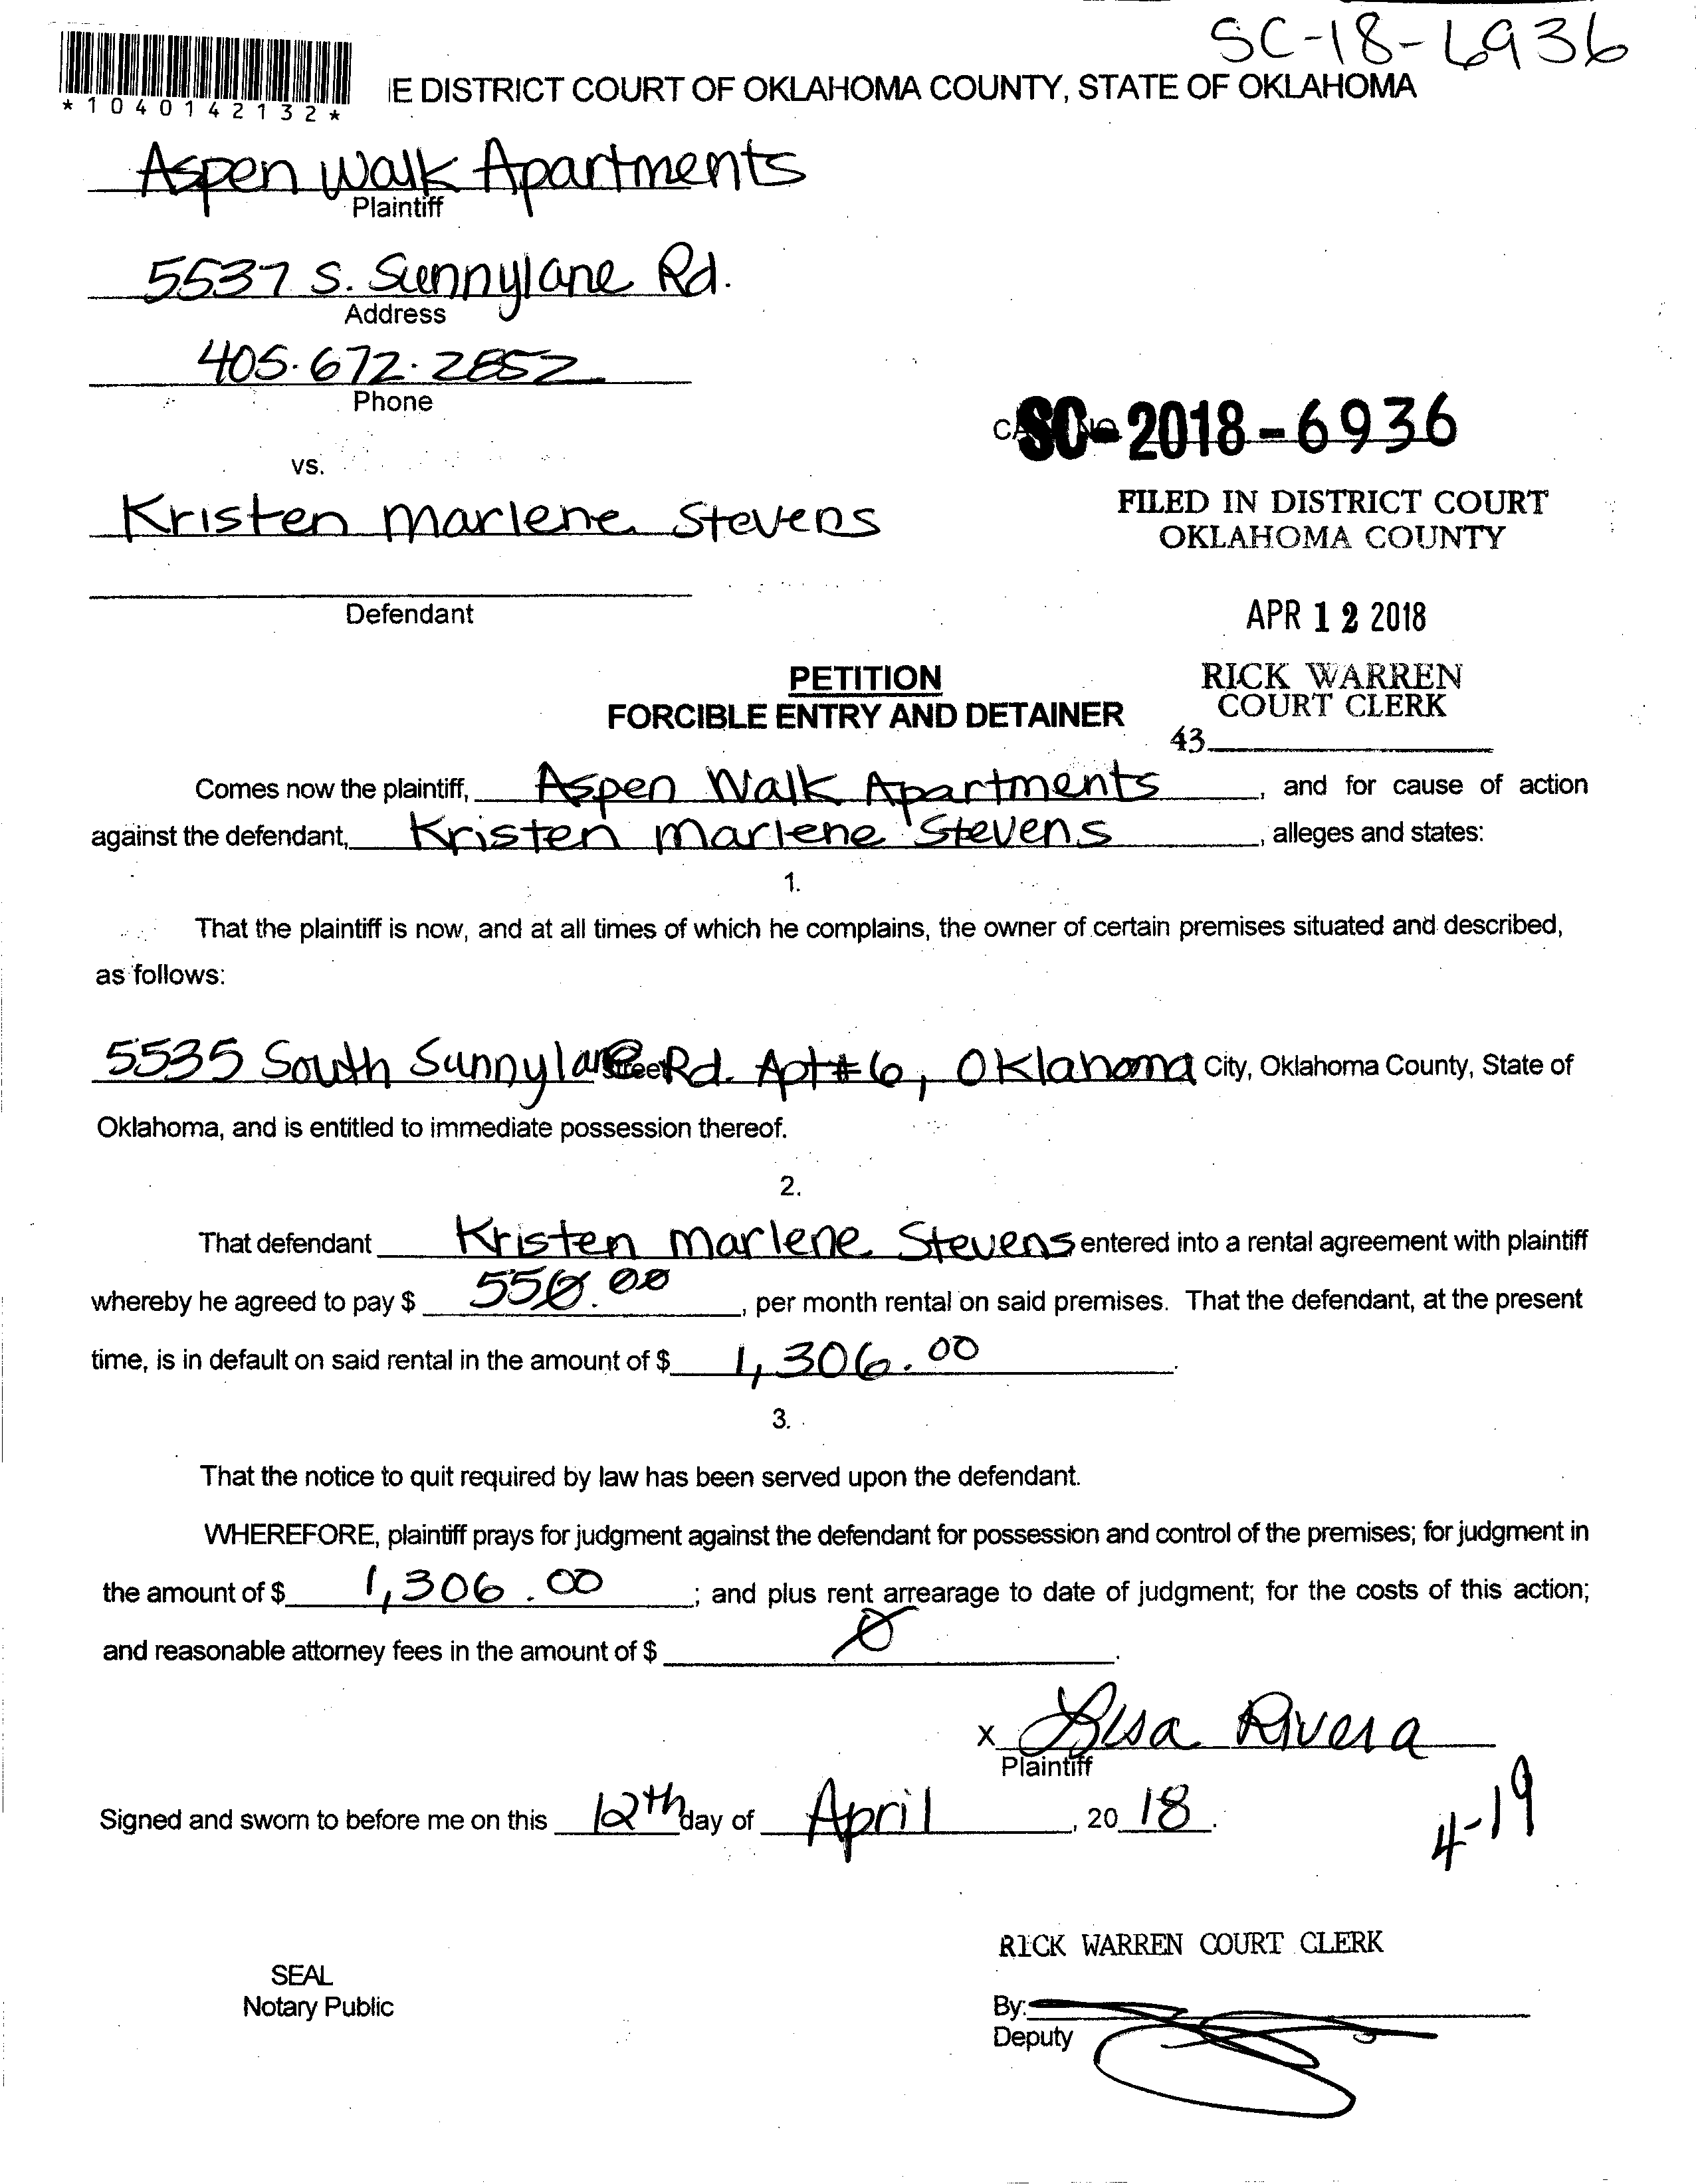 SC-18-6936
*1040142132*
E DISTRICT COURT OF OKLAHOMA COUNTY, STATE OF OKLAHOMA
Aspen Walk Apartments
Plaintiff
5537 S. Sunnylane Rd.
Address
405.672.2852
Phone
SC-2018-6936
vs.
Kristen Marlene Stevens
FILED IN DISTRICT COURT
OKLAHOMA COUNTY
Defendant
APR 12 2018
PETITION
FORCIBLE ENTRY AND DETAINER
RICK WARREN
COURT CLERK
43
Comes now the plaintiff, Aspen Walk Apartments, and for cause of action
against the defendant, Kristen Marlene Stevens, alleges and states:
1.
That the plaintiff is now, and at all times of which he complains, the owner of certain premises situated and described,
as follows:
5535 South Sunnylane Rd. Apt #6, Oklahoma City, Oklahoma County, State of
Oklahoma, and is entitled to immediate possession thereof.
2.
That defendant Kristen Marlene Stevens entered into a rental agreement with plaintiff
whereby he agreed to pay $ 550.00, per month rental on said premises. That the defendant, at the present
time, is in default on said rental in the amount of $ 1,306.00.
3.
That the notice to quit required by law has been served upon the defendant.
WHEREFORE, plaintiff prays for judgment against the defendant for possession and control of the premises; for judgment in
the amount of $ 1,306.00; and plus rent arrearage to date of judgment; for the costs of this action;
and reasonable attorney fees in the amount of $ 0.
X Lisa Rivera
Plaintiff
Signed and sworn to before me on this 12th day of April, 20 18.
4-19
RICK WARREN COURT CLERK
SEAL
Notary Public
By:
Deputy